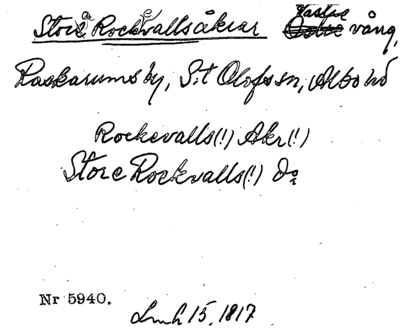 Store Rockvallsåkrar Västre vång,
Raskarums by, S:t Olofs sn, Albo hd
Rockevalls(!) Akr(!)
Store Rockvalls(!) do
Nr 5940. Lmh 15, 1817